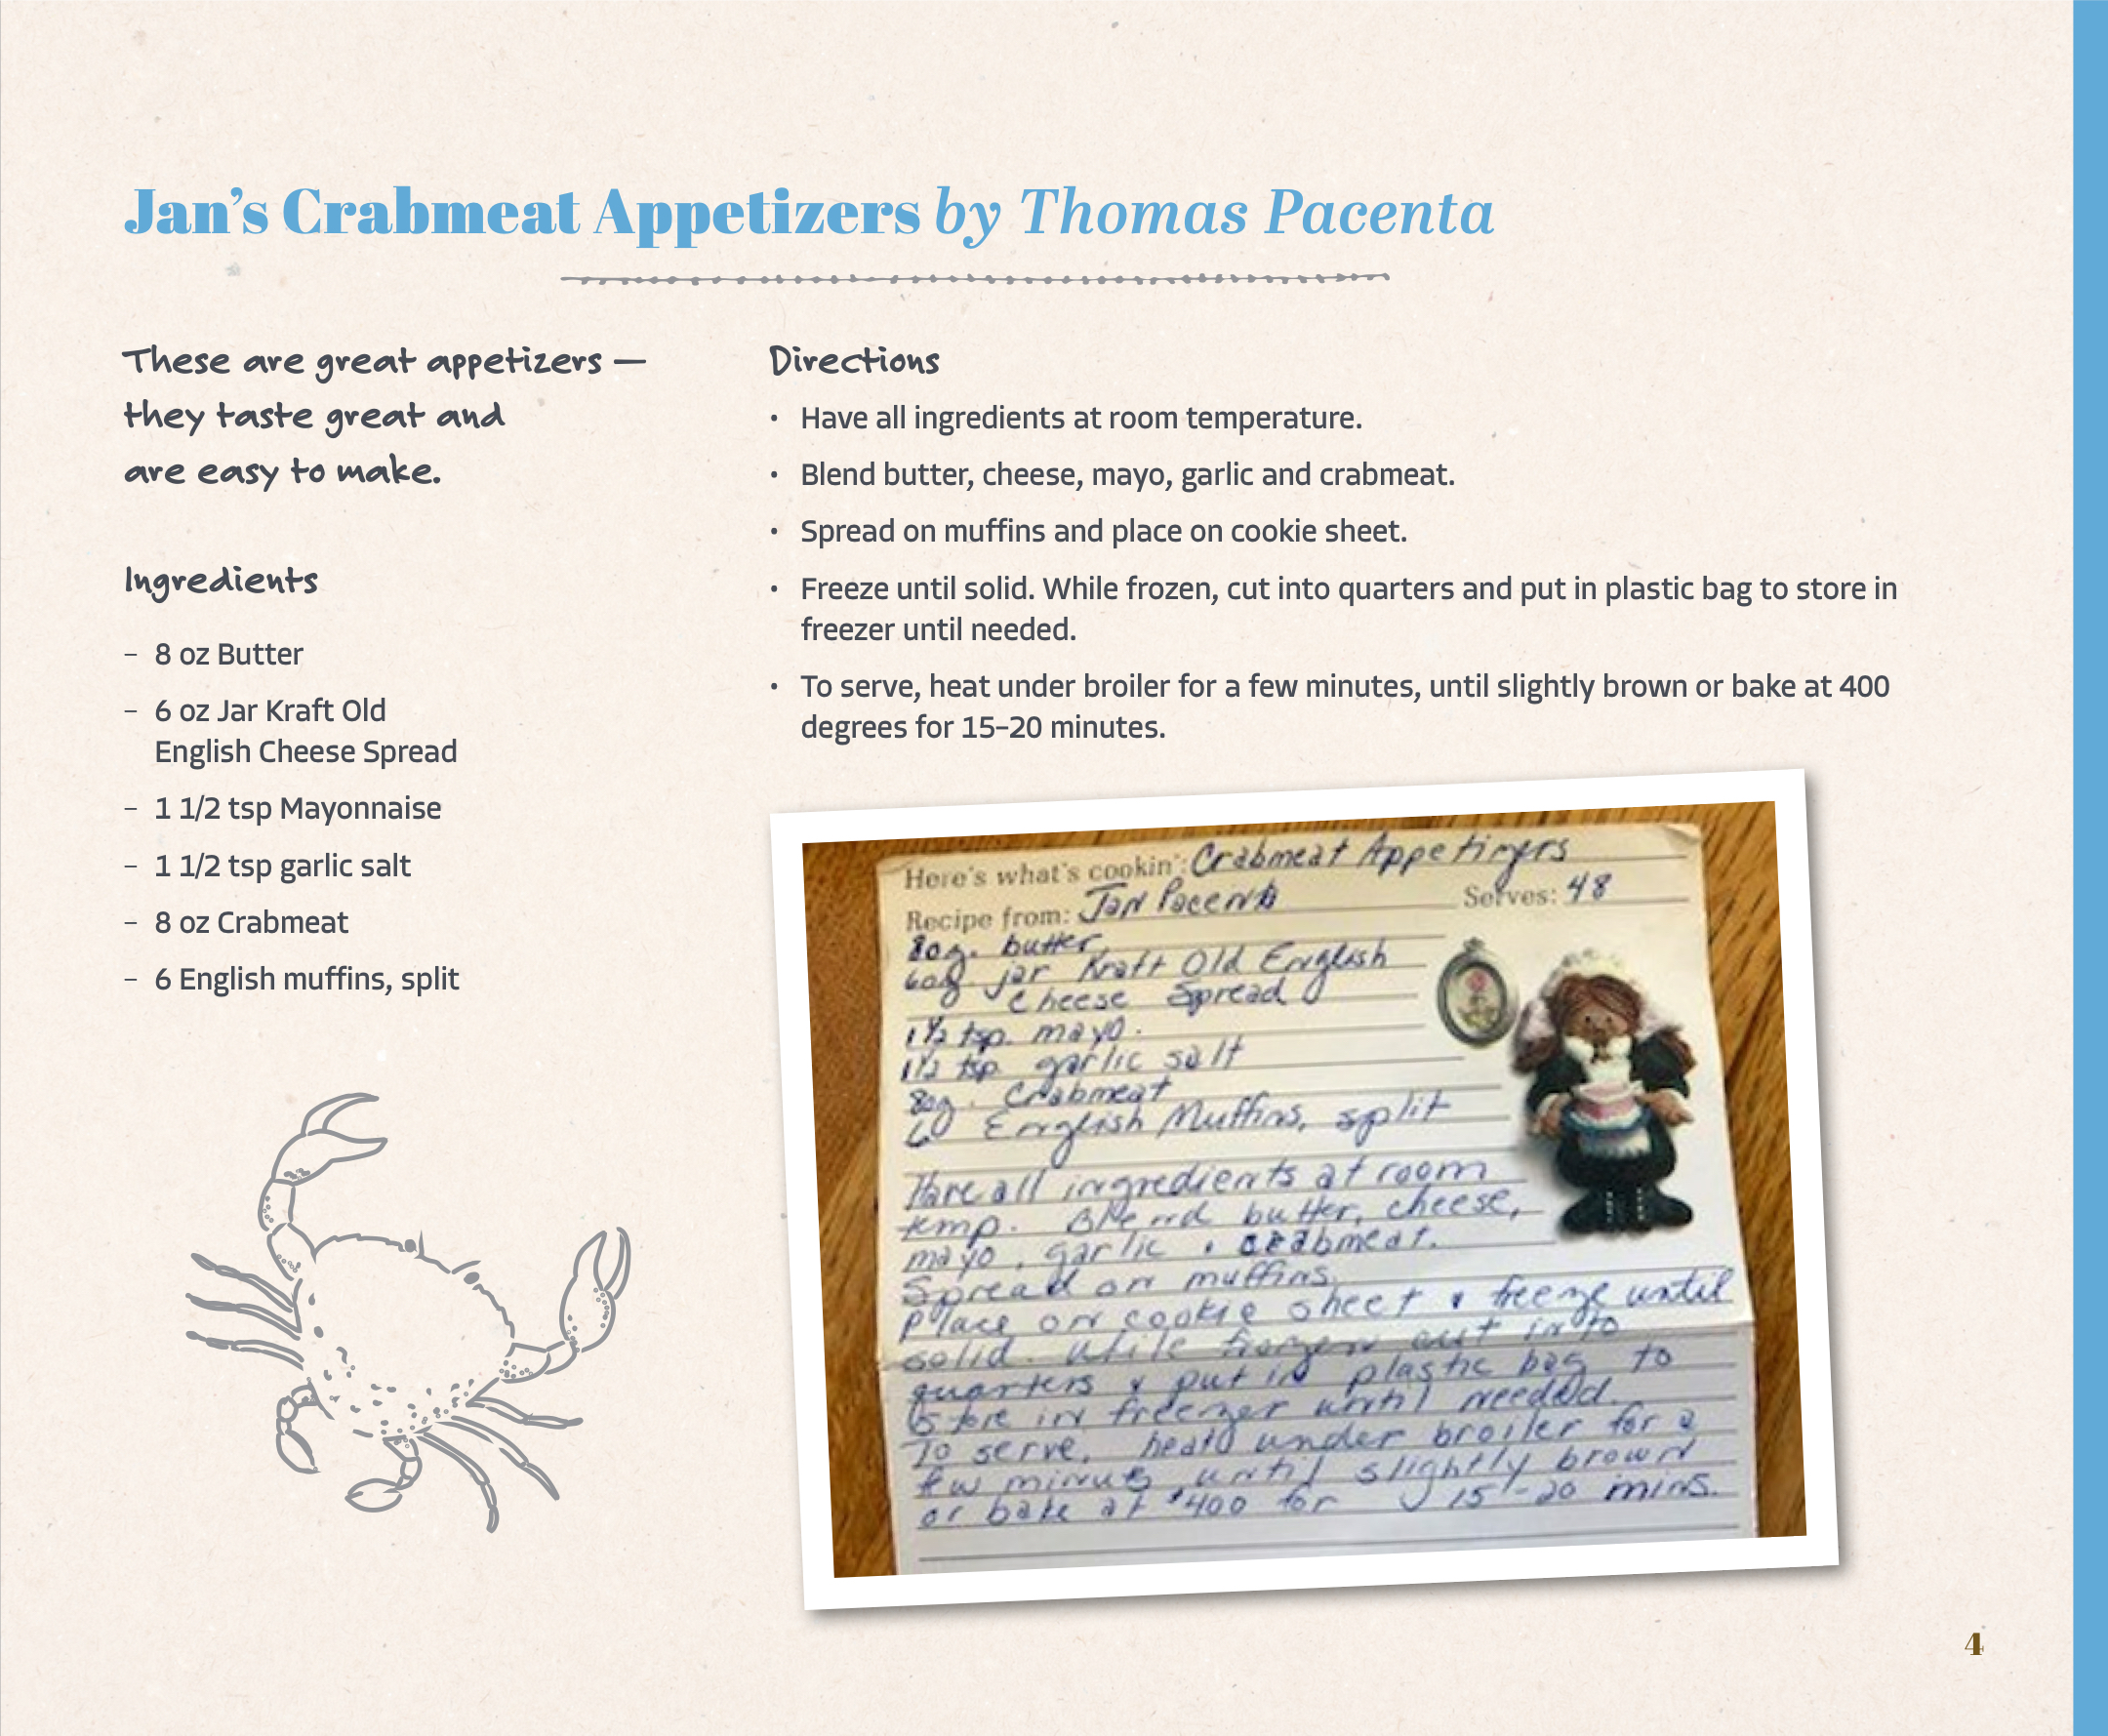 Jan’s Crabmeat Appetizers by Thomas Pacenta
These are great appetizers —
they taste great and
are easy to make.
Ingredients
– 8 oz Butter
– 6 oz Jar Kraft Old
English Cheese Spread
– 1 1/2 tsp Mayonnaise
– 1 1/2 tsp garlic salt
– 8 oz Crabmeat
– 6 English muffins, split
Directions
• Have all ingredients at room temperature.
• Blend butter, cheese, mayo, garlic and crabmeat.
• Spread on muffins and place on cookie sheet.
• Freeze until solid. While frozen, cut into quarters and put in plastic bag to store in
freezer until needed.
• To serve, heat under broiler for a few minutes, until slightly brown or bake at 400
degrees for 15–20 minutes.
Here's what's cookin': Crabmeat Appetizers
Recipe from: Jan Pacenta Serves: 48
8oz. butter
6oz. jar Kraft Old English
Cheese Spread
1 1/2 tsp. mayo.
1 1/2 tsp. garlic salt
8oz. Crabmeat
6 English Muffins, split
Have all ingredients at room
temp. Blend butter, cheese,
mayo, garlic & crabmeat.
Spread on muffins.
Place on cookie sheet & freeze until
solid. While frozen cut into
quarters & put in plastic bag to
store in freezer until needed.
To serve, heat under broiler for a
few minutes until slightly brown
or bake at 400 for 15-20 mins.
4